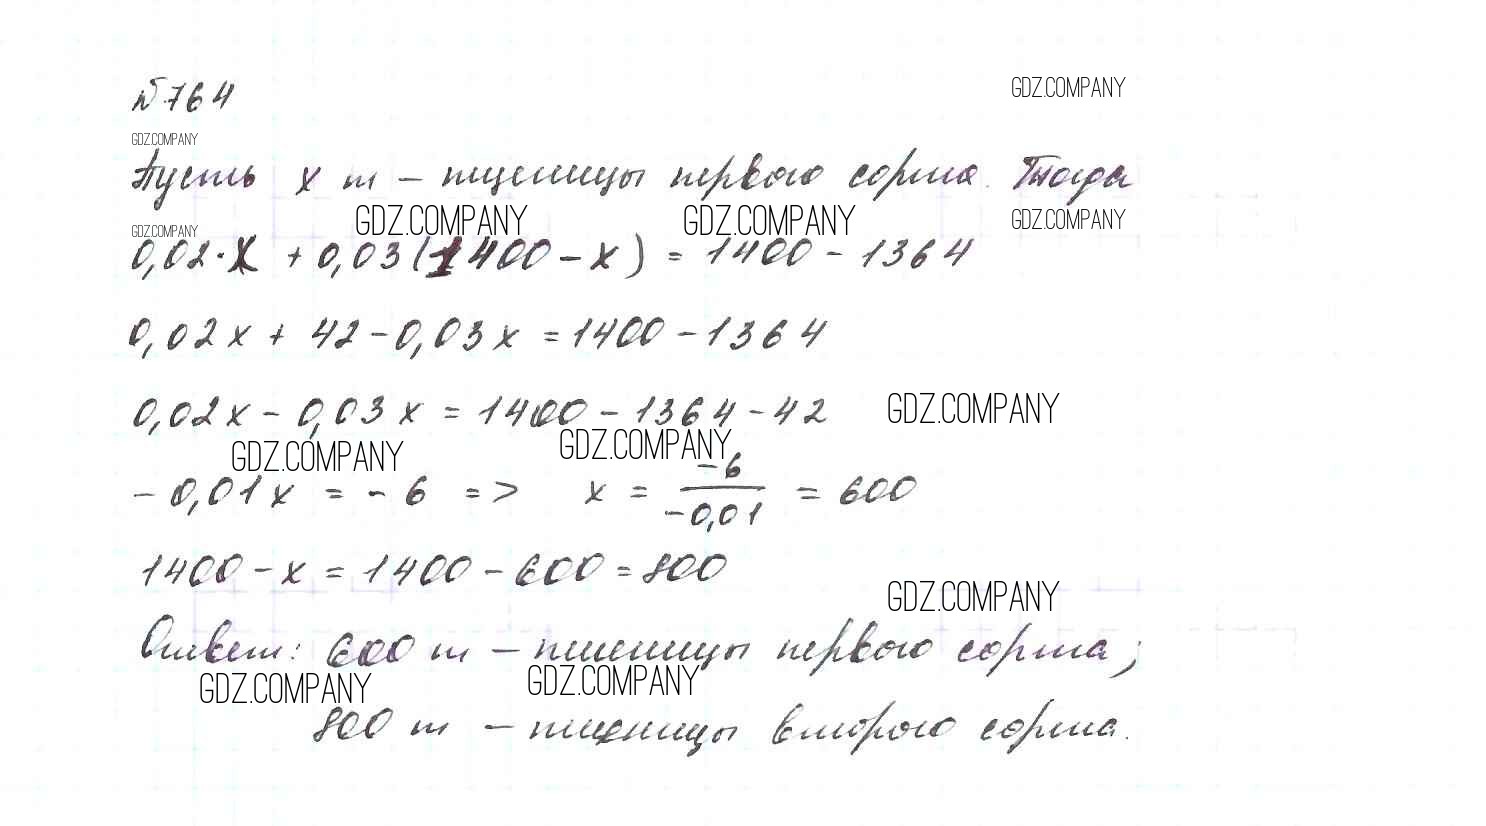 №764
GDZ.COMPANY
GDZ.COMPANY
Пусть x т – пшеницы первого сорта. Тогда
GDZ.COMPANY GDZ.COMPANY GDZ.COMPANY
GDZ.COMPANY
0,02·x + 0,03(1400 – x) = 1400 – 1364
0,02x + 42 – 0,03x = 1400 – 1364
0,02x – 0,03x = 1400 – 1364 – 42 GDZ.COMPANY
GDZ.COMPANY GDZ.COMPANY
– 0,01x = – 6 => x = –6/–0,01 = 600
1400 – x = 1400 – 600 = 800
GDZ.COMPANY
Ответ: 600 т – пшеницы первого сорта;
GDZ.COMPANY GDZ.COMPANY
800 т – пшеницы второго сорта.